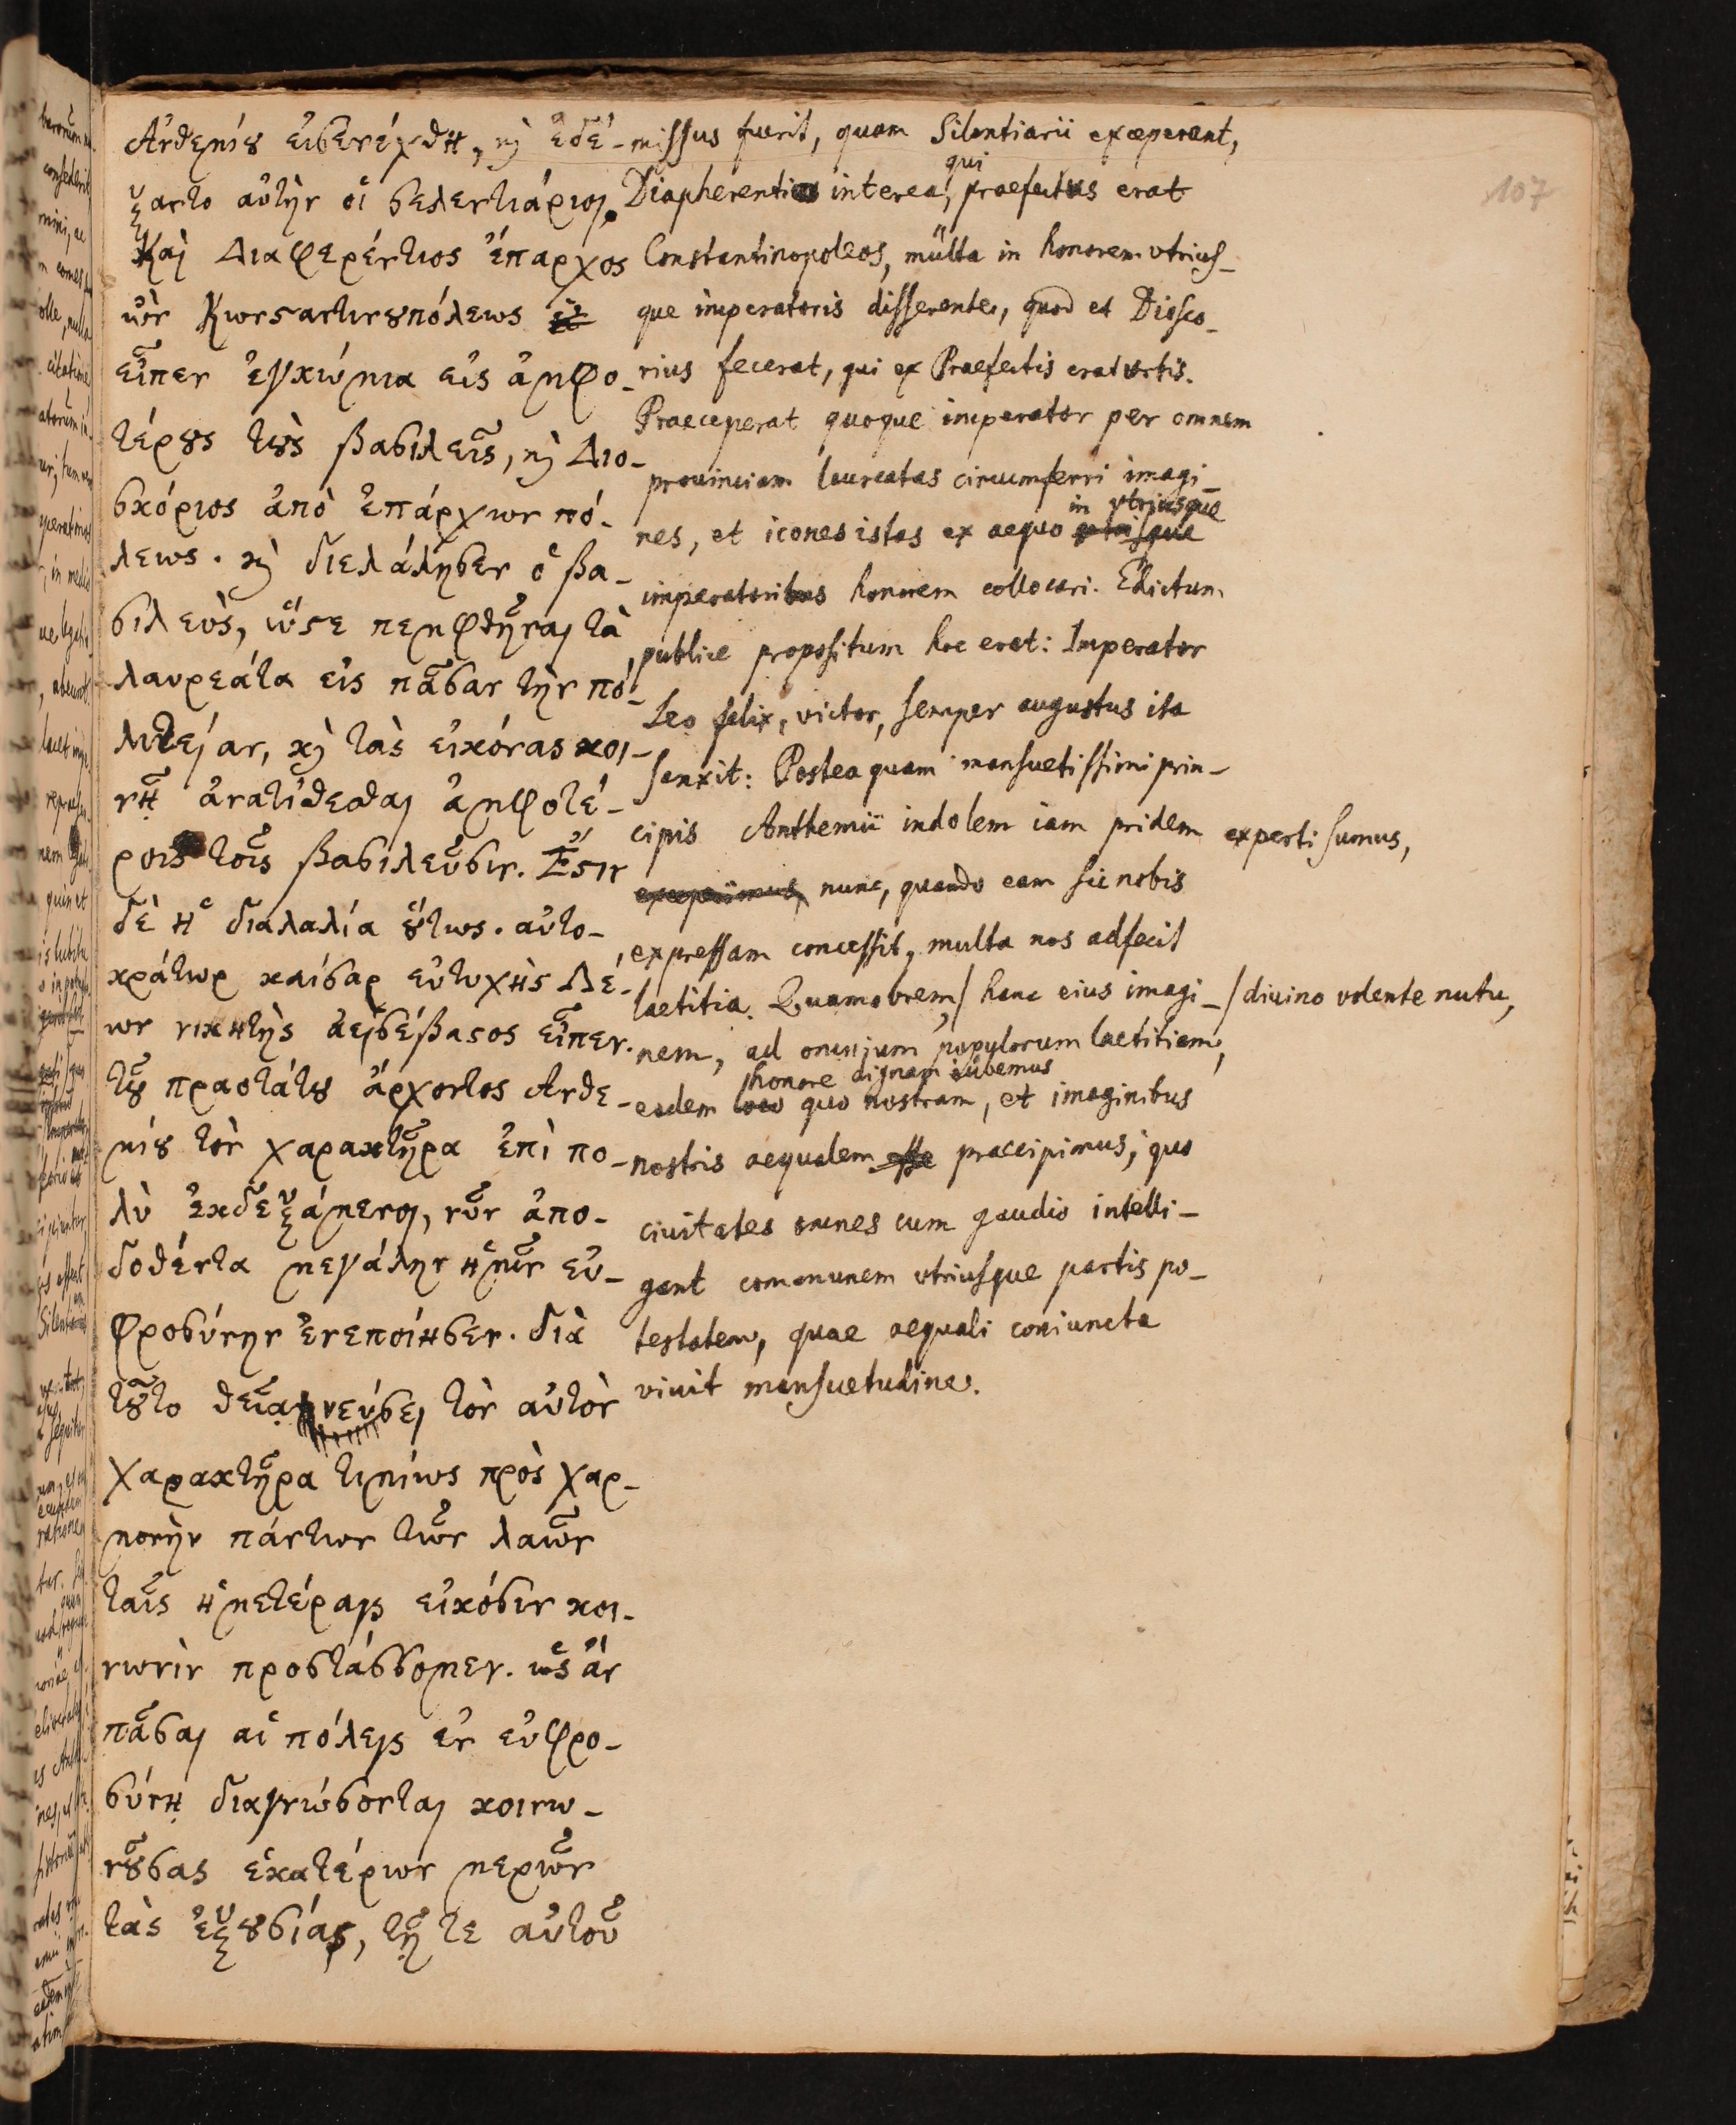 107
Ἀνθεμίȣ εἰσενέχθη, ϗ ἐδέ-
ξαντο αὐτὴν οἱ σελεντιάριοι.
Καὶ Διαφερέντιος ἔπαρχος
ὢν Κωνϛαντινȣπόλεως
εἶπεν ἐγκώμια εἰς ἀμφο-
τέρȣς τȣ̀ς βασιλεῖς, ϗ Διο-
σκόριος ἀπὸ ἐπάρχων πό-
λεως. ϗ διελάλησεν ὁ βα-
σιλεὺς, ὥϛε πεμφθῆναι τὰ
λαυρεάτα εἰς πᾶσαν τὴν πο-
λιτείαν, ϗ τὰς εἰκόνας κοι-
νῇ ἀνατίθεσθαι ἀμφοτέ-
ροις τοῖς βασιλεῦσιν. Ἔϛιν
δὲ ἡ διαλαλία ȣ̔́τως. αὐτο-
κράτωρ καίσαρ εὐτυχὴς Λέ-
ων νικητὴς ἀεισέβαϛος εἶπεν.
τȣ͂ πραοτάτȣ ἄρχοντος Ἀνθε-
μίȣ τὸν χαρακτῆρα ἐπὶ πο-
λὺ ἐκδεξάμενοι, νῦν ἀπο-
δοθέντα μεγάλην ἡμῖν εὐ-
φροσύνην ἐνεποίησεν. διὰ
τȣ͂το θείᾳ νεύσει τὸν αὐτὸν
χαρακτῆρα τιμίως πρὸς χαρ-
μονὴν πάντων τῶν λαῶν
ταῖς ἡμετέραις εἰκόσιν κοι-
νωνὶν προστάσσομεν. ὡς ἂν
πᾶσαι αἱ πόλεις ἐν εὐφρο-
σύνῃ διαγνώσονται κοινω-
νȣ͂σας ἑκατέρων μερῶν
τὰς ἐξȣσίας, τῇ τε αὐτοῦ
missus fuerit, quam Silentiarii exceperant,
Diapherentio interea, qui praefectus erat
Constantinopoleos, multa in honorem utrius-
que imperatoris disserente, quod et Diosco-
rius fecerat, qui ex Praefectis erat urbis.
Praeceperat quoque imperator per omnem
prouinciam laureatas circumferri imagi-
nes, et icones istas ex aequo in utriusque
imperatoris honorem collocari. Edictum
publice propositum hoc erat: Imperator
Leo felix, victor, semper augustus ita
sanxit: Posteaquam mansuetissimi prin-
cipis Anthemii indolem iam pridem experti sumus,
nunc, quando eam sic nobis
expressam concessit, multa nos adfecit
laetitia. Quamobrem, / hanc eius imagi- / diuino volente nutu,
nem, ad omnium populorum laetitiam,
eodem honore dignam iubemus
quo nostram, et imaginibus
nostris aequalem esse praecipimus; quo
ciuitates omnes cum gaudio intelli-
gant communem utriusque partis po-
testatem, quae aequali coniuncta
viuit mansuetudine.